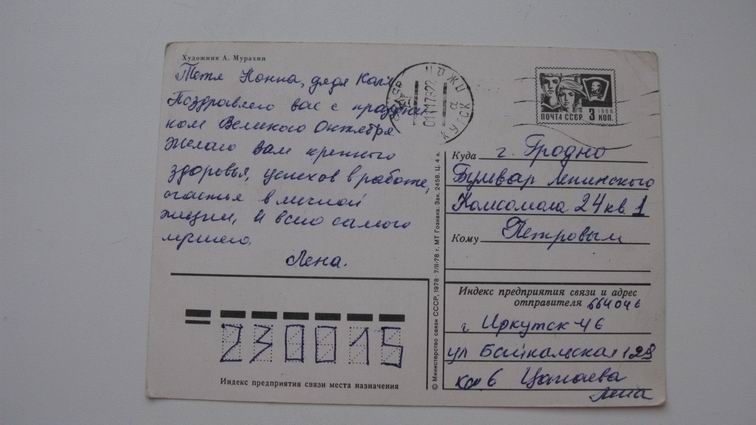 Художник А. Мурахин
Тетя Нонна, дядя Коля
Поздравляю вас с праздни-
ком Великого Октября
Желаю вам крепкого
здоровья, успехов в работе,
счастья в личной
жизни, и всего самого
лучшего.
Лена.
230015
Индекс предприятия связи места назначения
© Министерство связи СССР, 1978 7/II-78 г. МТ Гознака. Зак. 2458. Ц. 4 к.
1966
ПОЧТА СССР 3 КОП.
Куда г. Гродно
Бульвар Ленинского
Комсомола 24 кв 1
Кому Петровым
Индекс предприятия связи и адрес
отправителя 664046
г Иркутск-46
ул Байкальская
ком 6 Цапаева
Лена